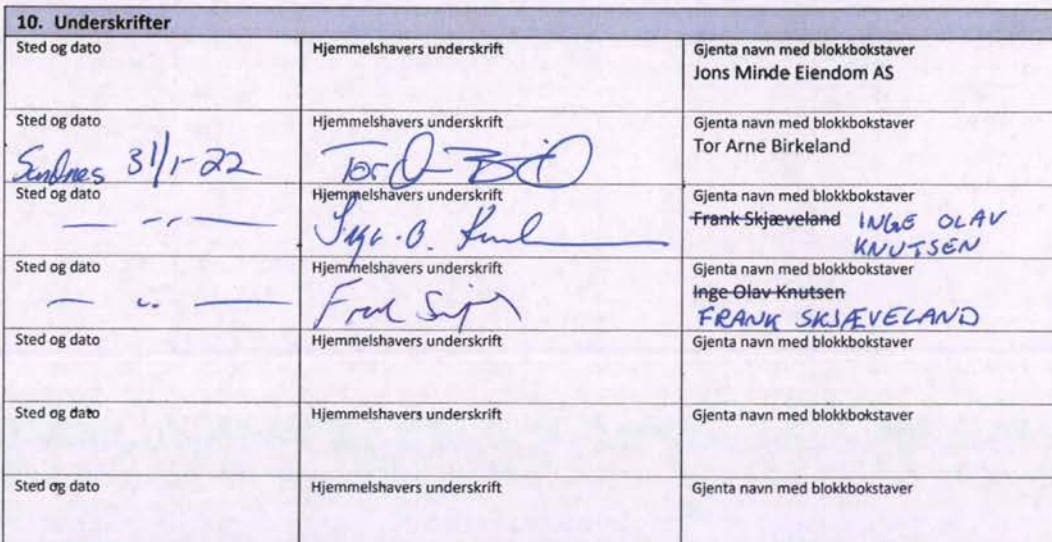 10. Underskrifter
Sted og dato
Hjemmelshavers underskrift
Gjenta navn med blokkbokstaver
Jons Minde Eiendom AS
Sted og dato
Hjemmelshavers underskrift
Gjenta navn med blokkbokstaver
Sandnes 31/1-22
Tor
Tor Arne Birkeland
Sted og dato
Hjemmelshavers underskrift
Gjenta navn med blokkbokstaver
— ,, —
Frank Skjæveland INGE OLAV
KNUTSEN
Sted og dato
Hjemmelshavers underskrift
Gjenta navn med blokkbokstaver
— ,, —
Inge Olav Knutsen
FRANK SKJÆVELAND
Sted og dato
Hjemmelshavers underskrift
Gjenta navn med blokkbokstaver
Sted og dato
Hjemmelshavers underskrift
Gjenta navn med blokkbokstaver
Sted og dato
Hjemmelshavers underskrift
Gjenta navn med blokkbokstaver